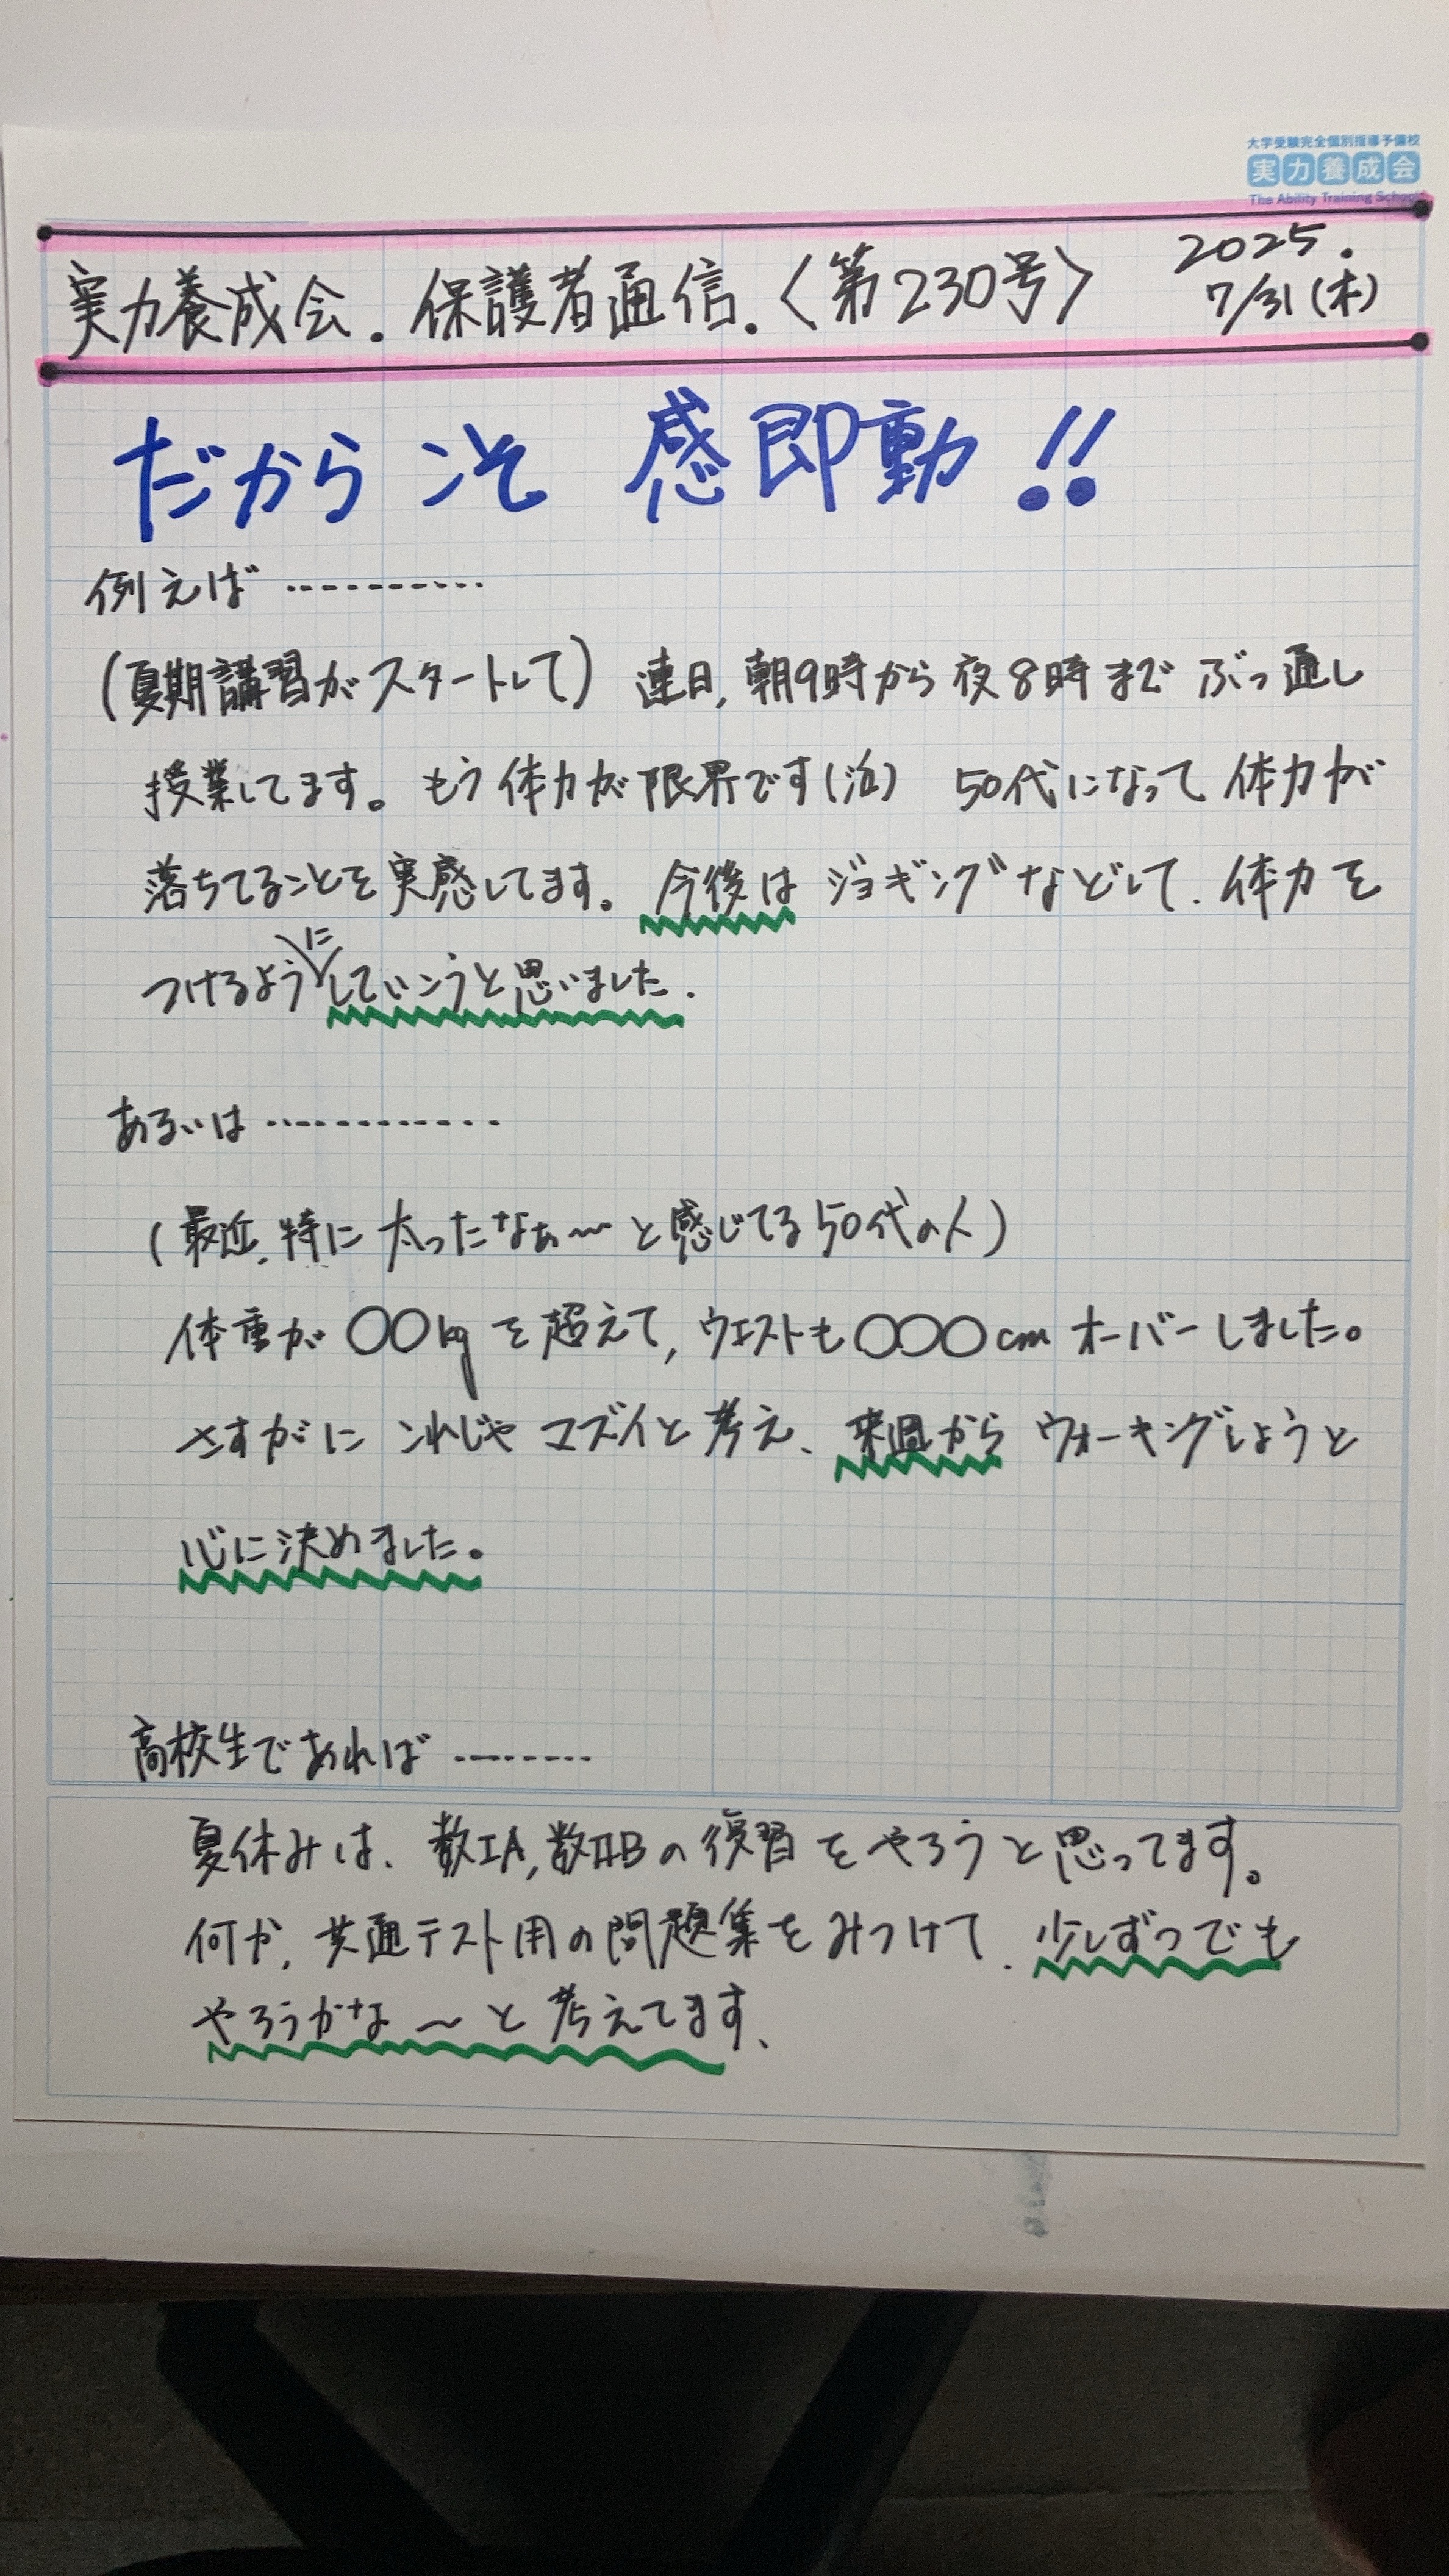 大学受験完全個別指導予備校
実力養成会
The Ability Training School
実力養成会.保護者通信.〈第230号〉
2025.
7/31(木)
だからこそ 感即動!!
例えば ‥‥‥‥‥
(夏期講習がスタートして) 連日,朝9時から夜8時まで ぶっ通し
授業してます。もう体力が限界です(泣) 50代になって体力が
落ちてることを実感してます。今後は ジョギングなどして、体力を
つけるようにしていこうと思いました.
あるいは ‥‥‥‥‥‥
(最近,特に 太ったなぁ〜と感じてる50代の人)
体重が〇〇kgを超えて,ウエストも〇〇〇cm オーバーしました。
さすがに これじゃ マズイと考え、来週から ウォーキングしようと
心に決めました。
高校生であれば ‥‥‥‥
夏休みは、数ⅠA,数ⅡBの復習をやろうと思ってます。
何か,共通テスト用の問題集をみつけて、少しずつでも
やろうかな〜と考えてます、